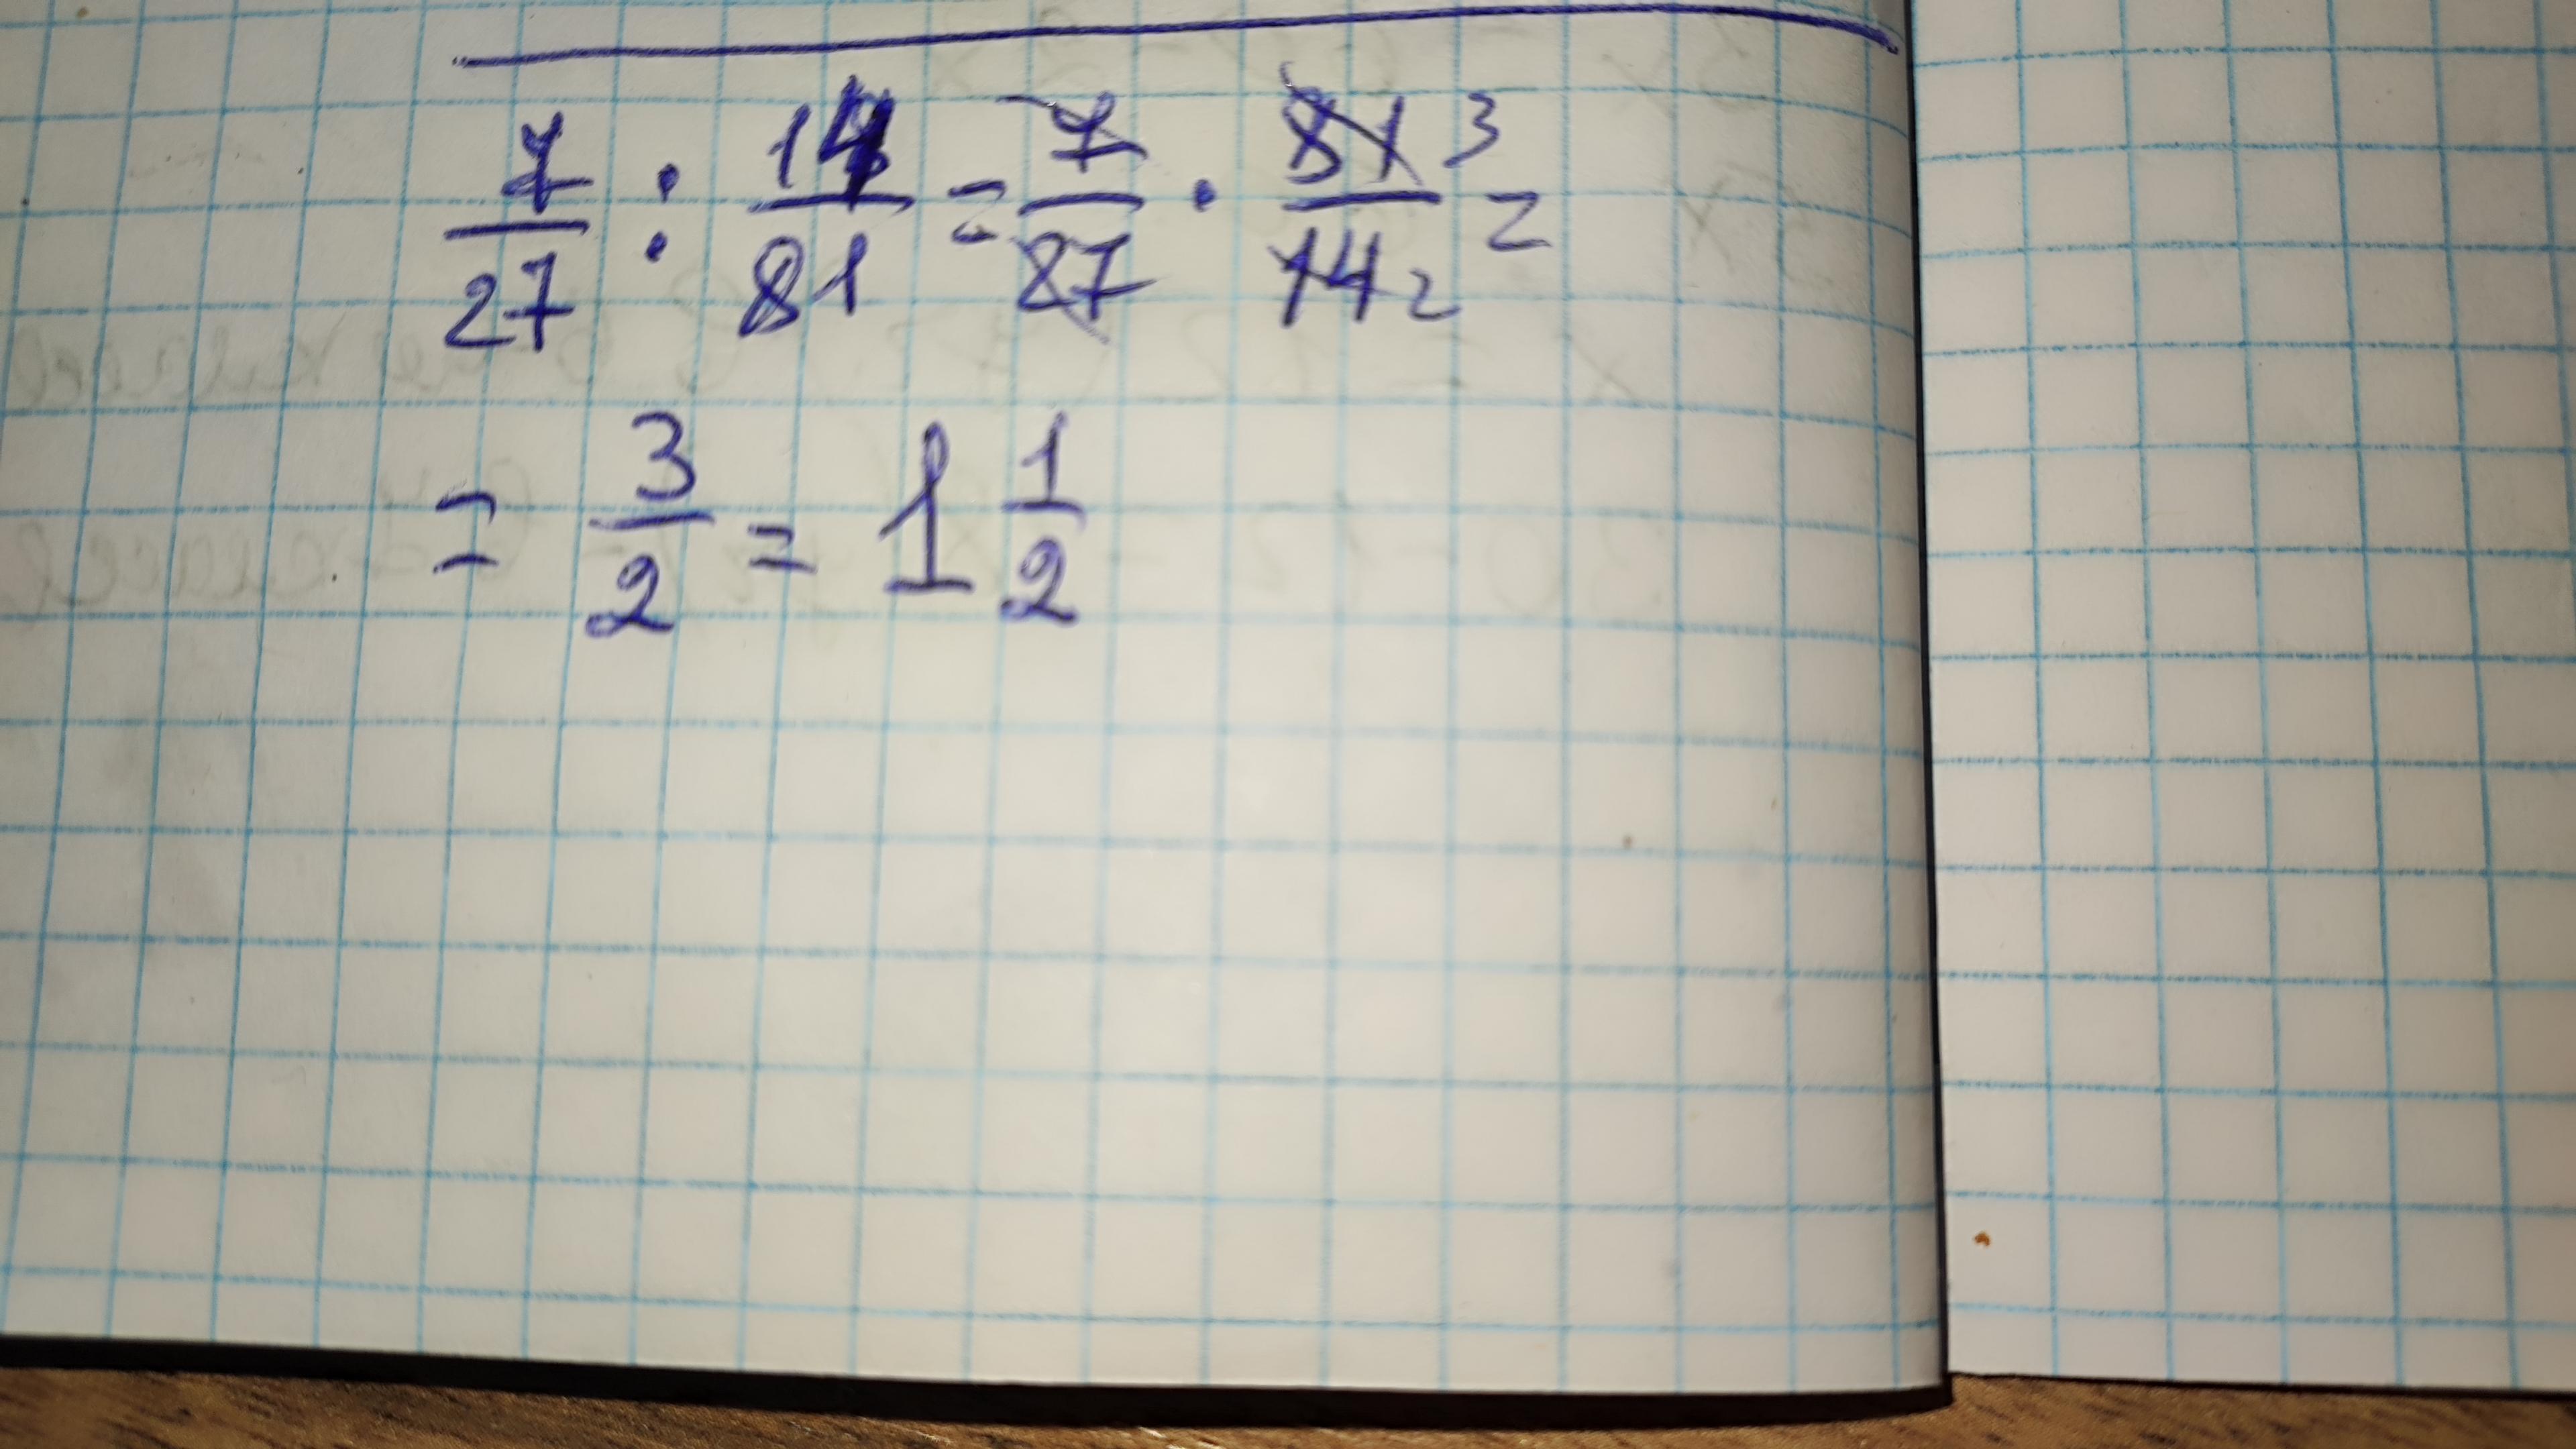 7/27 : 14/81 = 7/27 · 81 3/14 2 =
= 3/2 = 1 1/2